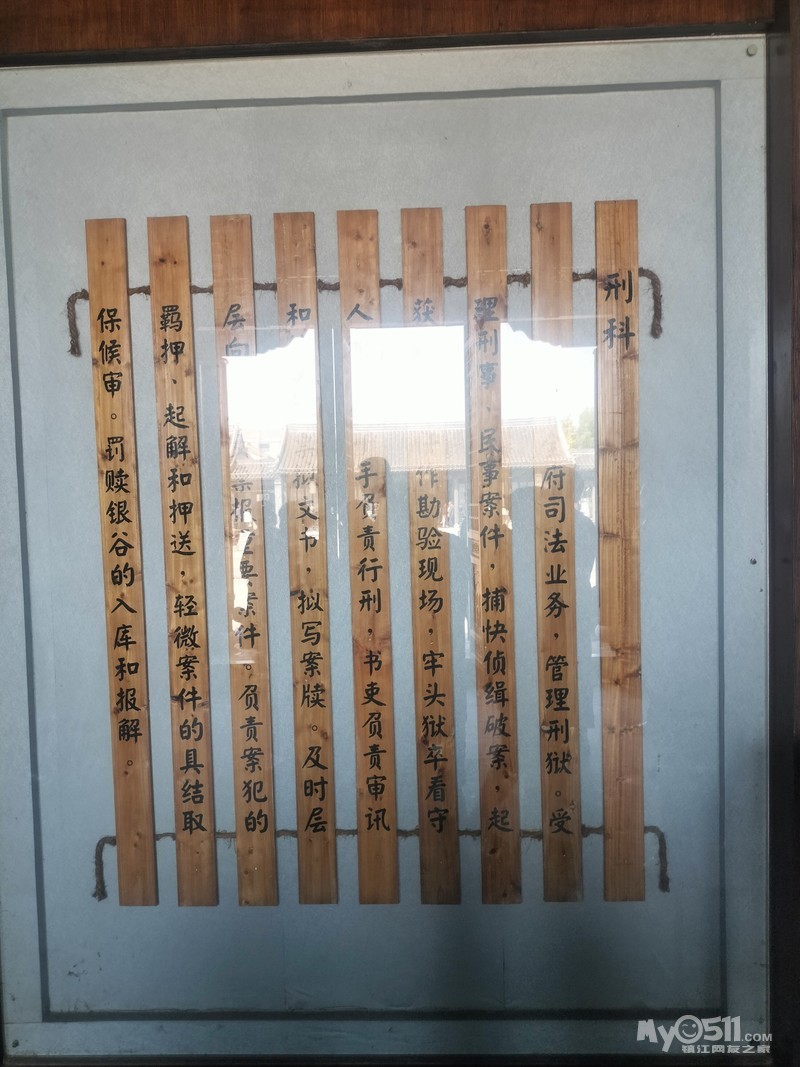 刑科
府司法业务，管理刑狱。受
理刑事、民事案件，捕快侦缉破案，起
获 作勘验现场，牢头狱卒看守
人 手负责行刑，书吏负责审讯
和 拟文书，拟写案牍。及时层
层向 案报重要案件。负责案犯的
羁押、起解和押送，轻微案件的具结取
保候审。罚赎银谷的入库和报解。
My0511.COM
镇江网友之家